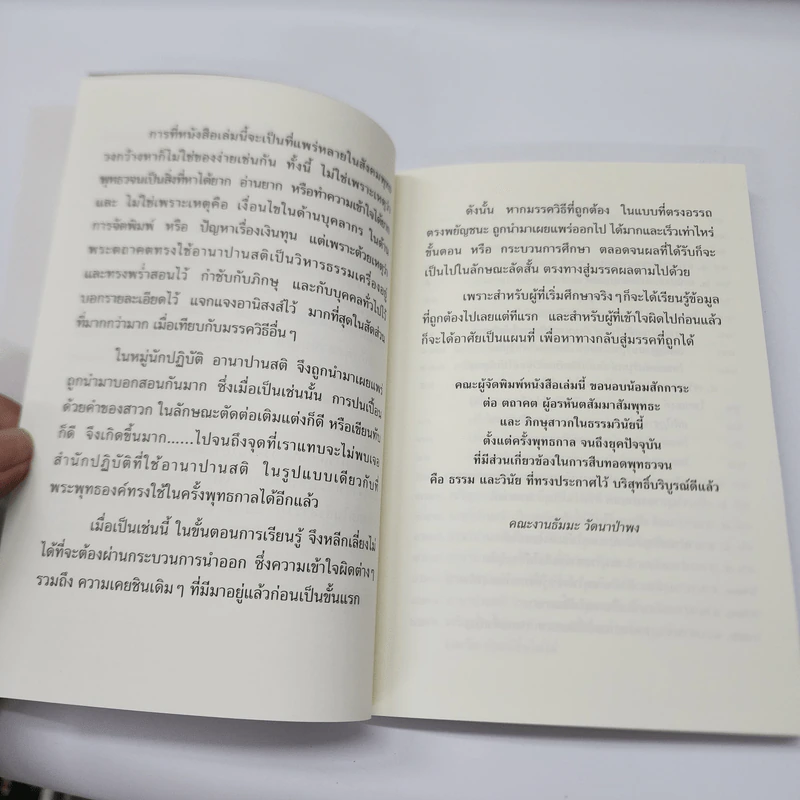 การที่หนังสือเล่มนี้จะเป็นที่แพร่หลายในสังคมพุทธ
วงกว้างหาก็ไม่ใช่ของง่ายเช่นกัน ทั้งนี้ ไม่ใช่เพราะเหตุว่า
พุทธวจนเป็นสิ่งที่หาได้ยาก อ่านยาก หรือทำความเข้าใจได้ยาก
และ ไม่ใช่เพราะเหตุคือ เงื่อนไขในด้านบุคลากร ในด้าน
การจัดพิมพ์ หรือ ปัญหาเรื่องเงินทุน แต่เพราะด้วยเหตุว่า
พระตถาคตทรงใช้อานาปานสติเป็นวิหารธรรมเครื่องอยู่
และทรงพร่ำสอนไว้ กำชับกับภิกษุ และกับบุคคลทั่วไปไว้
บอกรายละเอียดไว้ แจกแจงอานิสงส์ไว้ มากที่สุดในสัดส่วน
ที่มากกว่ามาก เมื่อเทียบกับมรรควิธีอื่นๆ
ในหมู่นักปฏิบัติ อานาปานสติ จึงถูกนำมาเผยแพร่
ถูกนำมาบอกสอนกันมาก ซึ่งเมื่อเป็นเช่นนั้น การปนเปื้อน
ด้วยคำของสาวก ในลักษณะตัดต่อเติมแต่งก็ดี หรือเขียนทับ
ก็ดี จึงเกิดขึ้นมาก......ไปจนถึงจุดที่เราแทบจะไม่พบเจอ
สำนักปฏิบัติที่ใช้อานาปานสติ ในรูปแบบเดียวกับที่
พระพุทธองค์ทรงใช้ในครั้งพุทธกาลได้อีกแล้ว
เมื่อเป็นเช่นนี้ ในขั้นตอนการเรียนรู้ จึงหลีกเลี่ยงไม่
ได้ที่จะต้องผ่านกระบวนการนำออก ซึ่งความเข้าใจผิดต่างๆ
รวมถึง ความเคยชินเดิมๆ ที่มีมาอยู่แล้วก่อนเป็นขั้นแรก
ดังนั้น หากมรรควิธีที่ถูกต้อง ในแบบที่ตรงอรรถ
ตรงพยัญชนะ ถูกนำมาเผยแพร่ออกไป ได้มากและเร็วเท่าไหร่
ขั้นตอน หรือ กระบวนการศึกษา ตลอดจนผลที่ได้รับก็จะ
เป็นไปในลักษณะลัดสั้น ตรงทางสู่มรรคผลตามไปด้วย
เพราะสำหรับผู้ที่เริ่มศึกษาจริงๆก็จะได้เรียนรู้ข้อมูล
ที่ถูกต้องไปเลยแต่ทีแรก และสำหรับผู้ที่เข้าใจผิดไปก่อนแล้ว
ก็จะได้อาศัยเป็นแผนที่ เพื่อหาทางกลับสู่มรรคที่ถูกได้
คณะผู้จัดพิมพ์หนังสือเล่มนี้ ขอนอบน้อมสักการะ
ต่อ ตถาคต ผู้อรหันตสัมมาสัมพุทธะ
และ ภิกษุสาวกในธรรมวินัยนี้
ตั้งแต่ครั้งพุทธกาล จนถึงยุคปัจจุบัน
ที่มีส่วนเกี่ยวข้องในการสืบทอดพุทธวจน
คือ ธรรม และวินัย ที่ทรงประกาศไว้ บริสุทธิ์บริบูรณ์ดีแล้ว
คณะงานธัมมะ วัดนาป่าพง